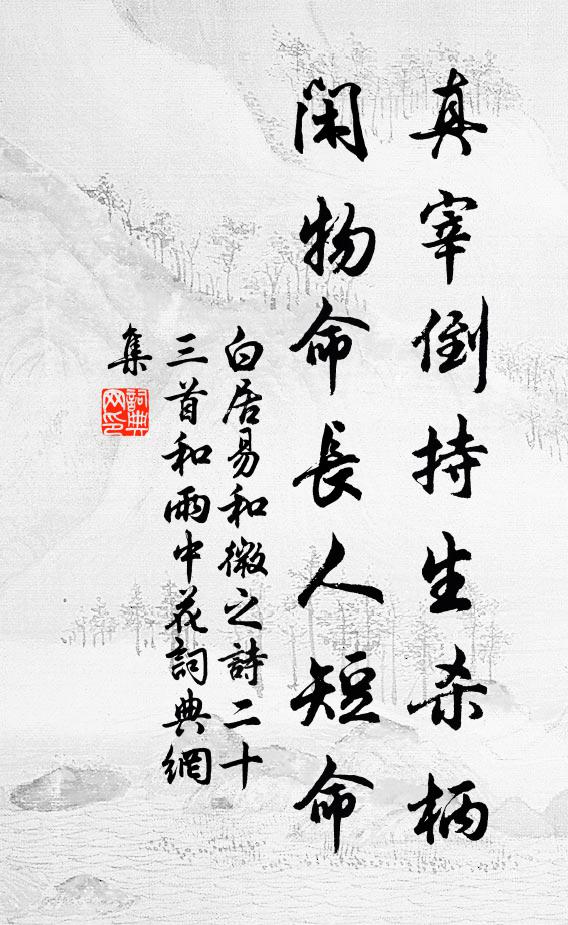 真宰倒持生杀柄
閑物命長人短命
白居易和微之詩二十
三首和雨中花詞典網
集
詞典
网印